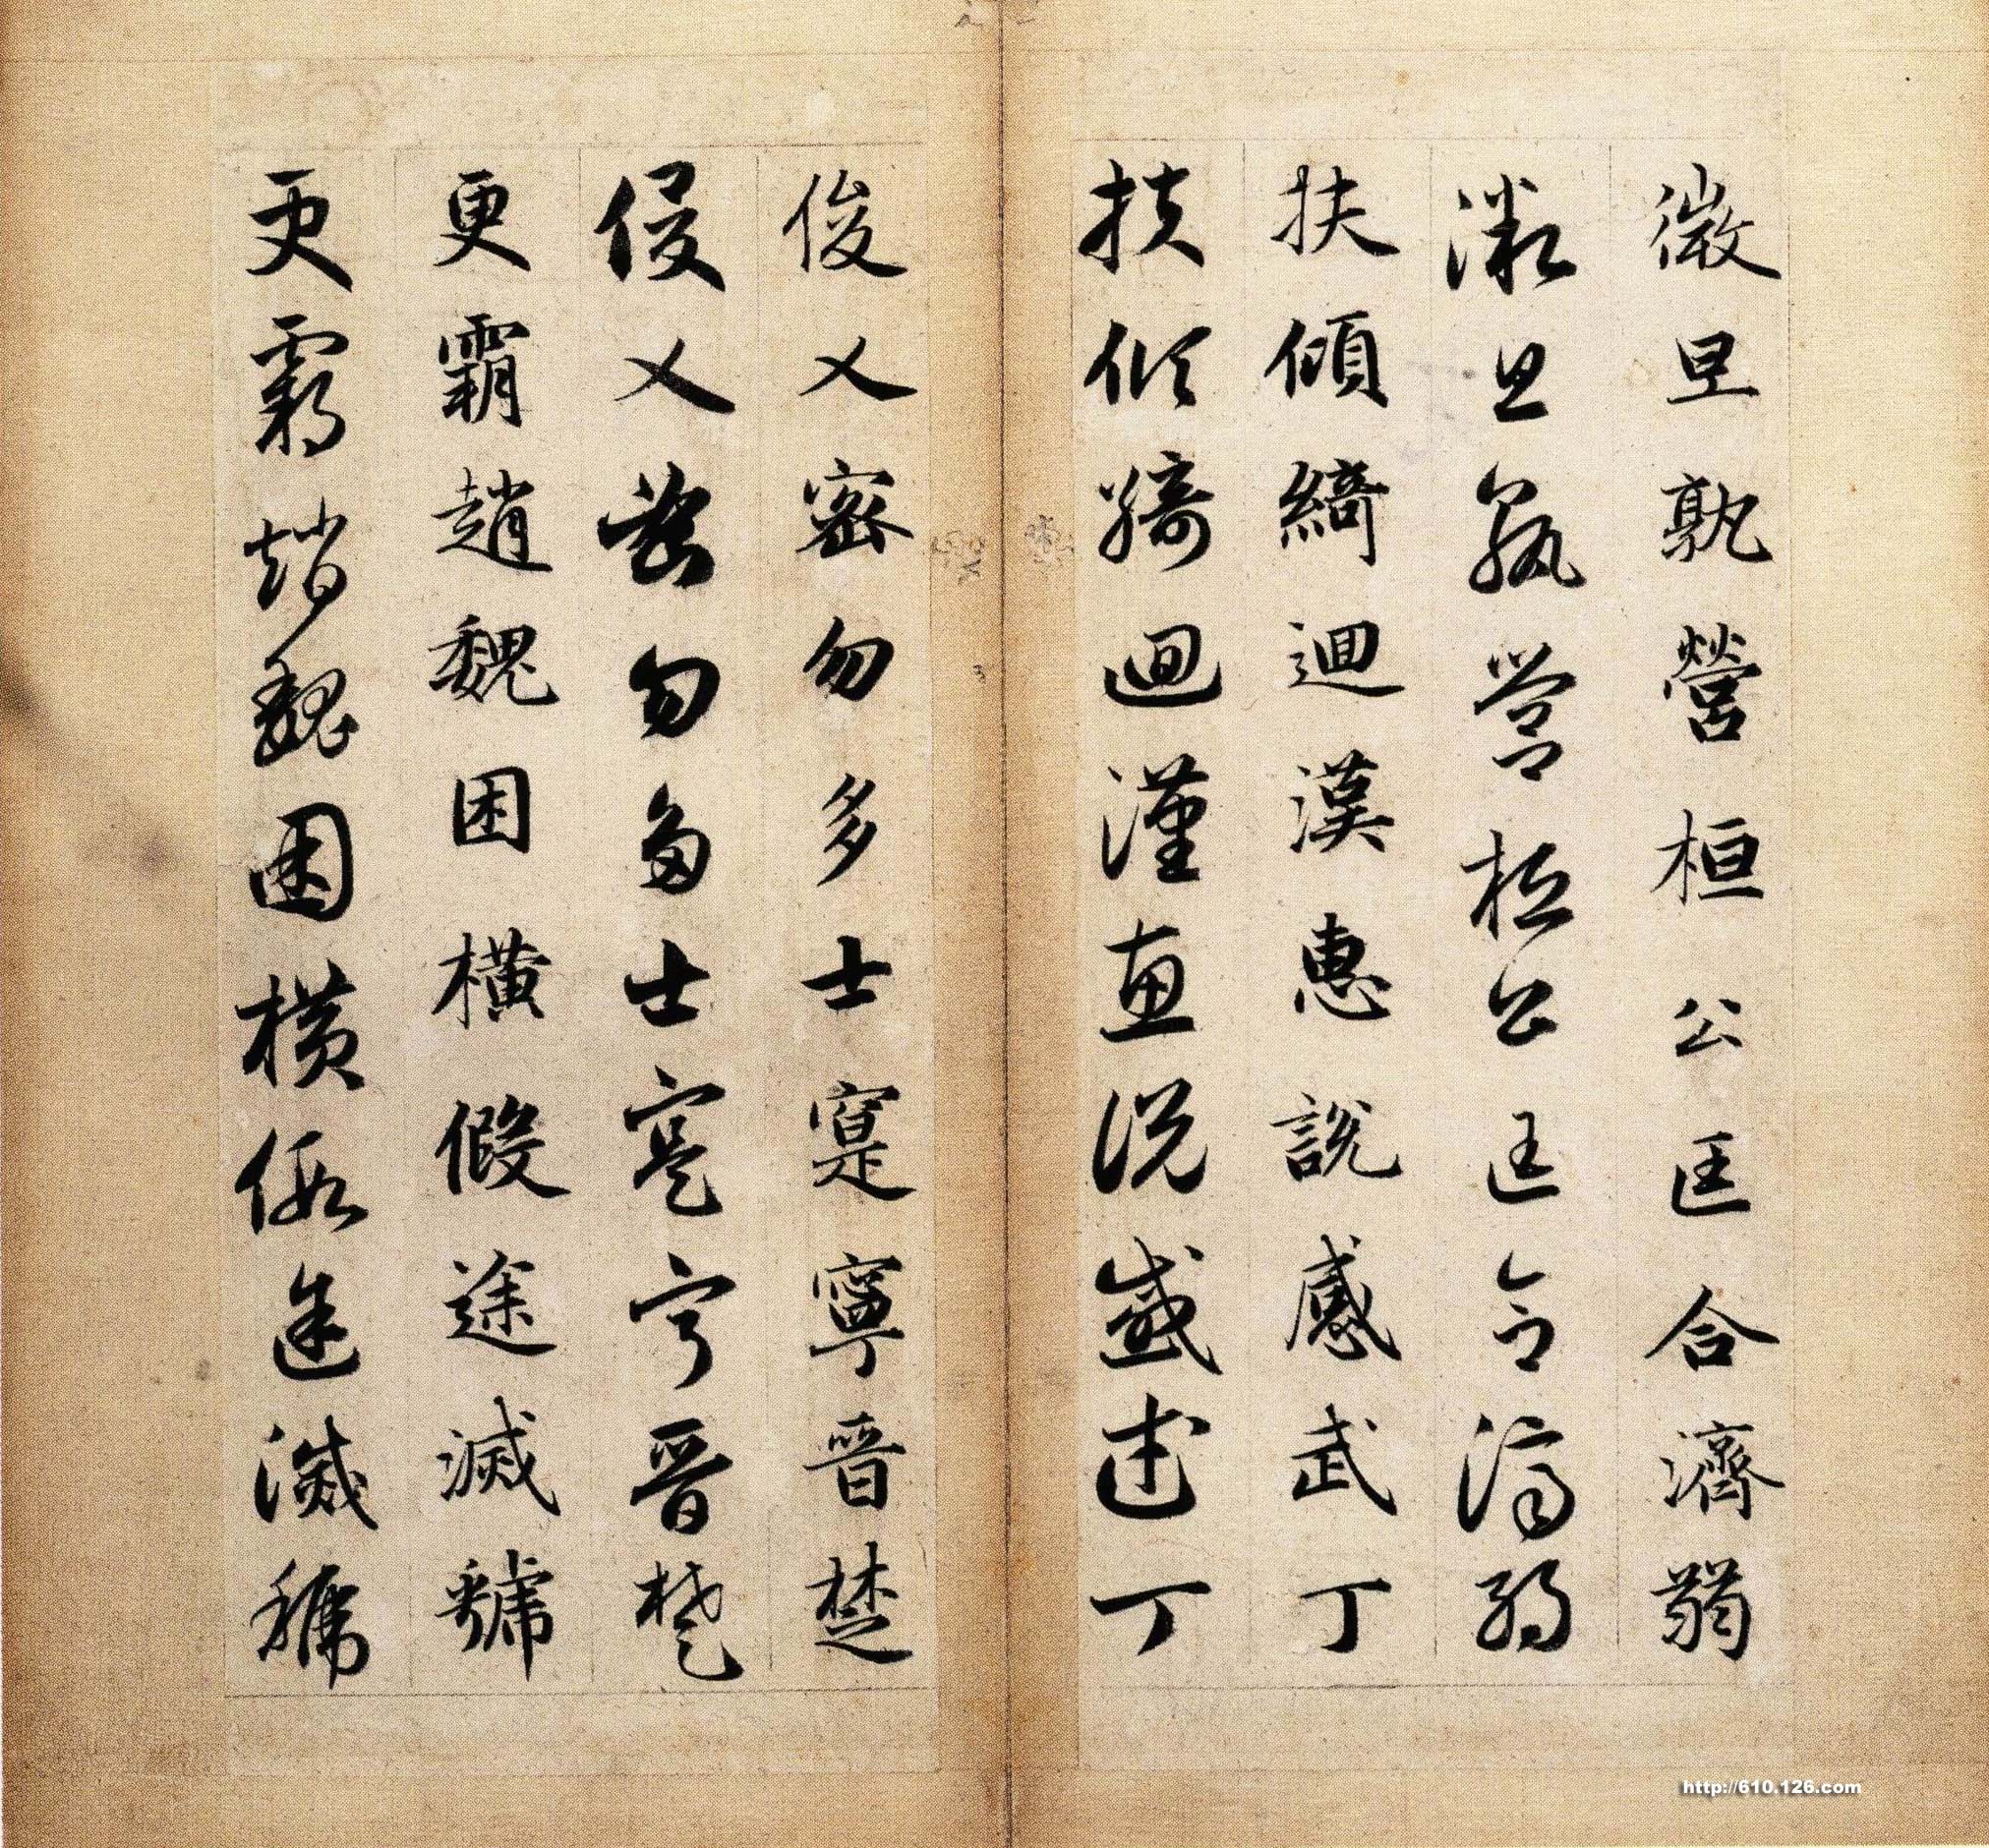 微旦孰營桓公匡合濟弱
微旦孰營桓公匡合濟弱
扶傾綺迴漢惠說感武丁
扶傾綺迴漢惠說感武丁
俊乂密勿多士寔寧晉楚
俊乂密勿多士寔寧晉楚
更霸趙魏困橫假途滅虢
更霸趙魏困橫假途滅虢
http://610.126.com